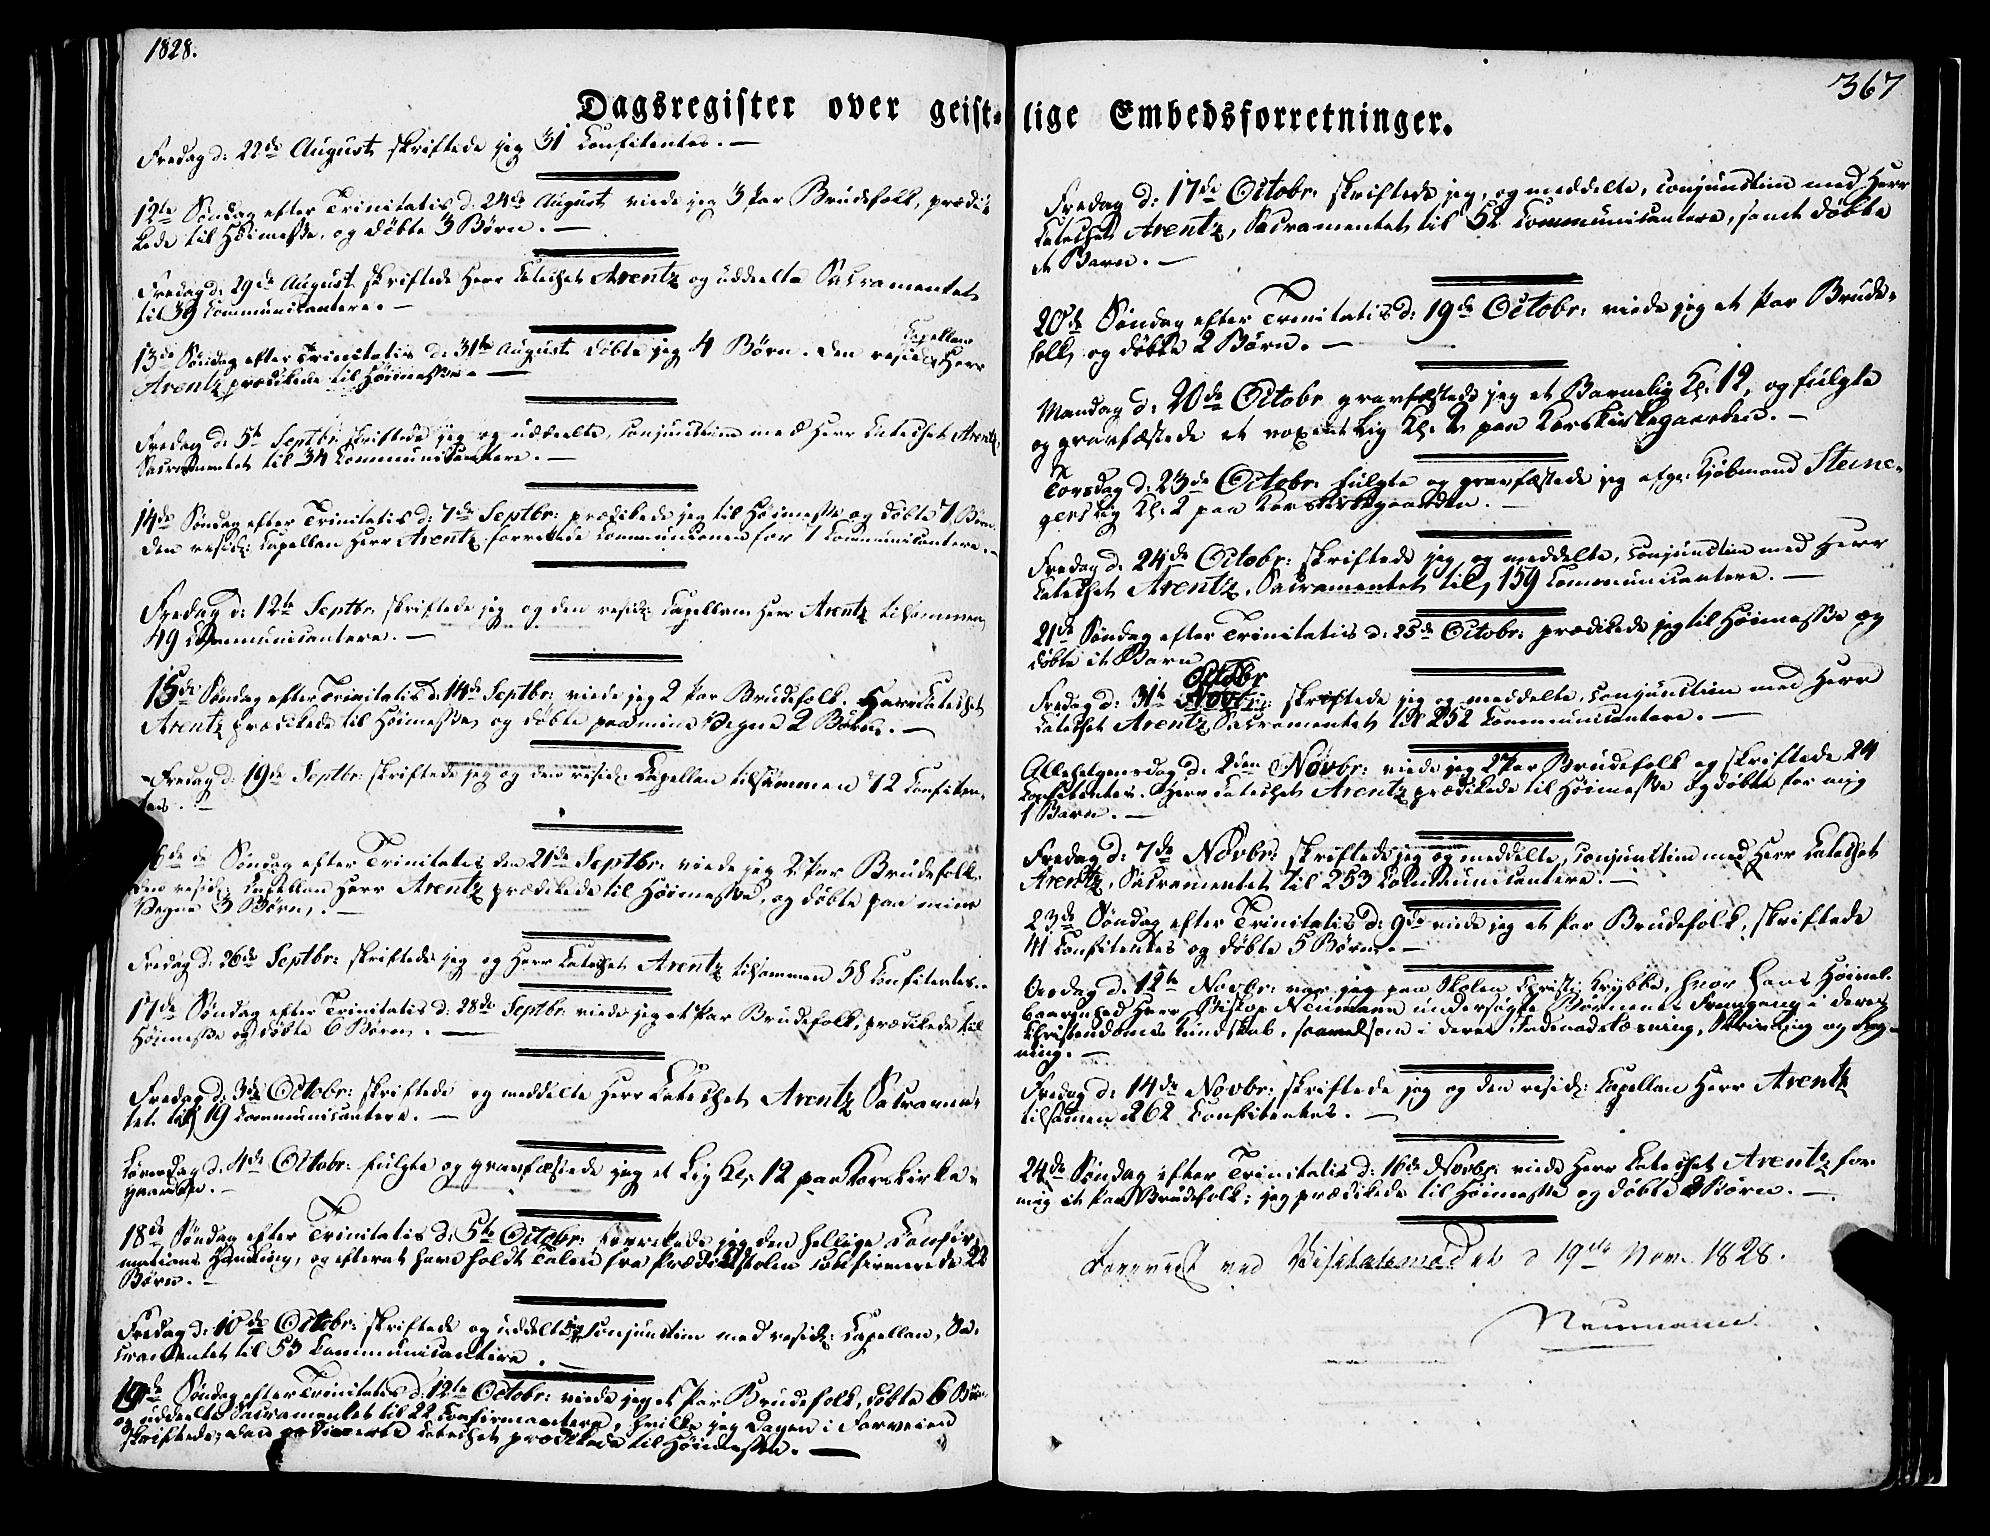 1828.
367
Dagsregister over geistlige Embedsforretninger.
Fredag d: 22de August skriftede jeg 31 Confitentes. —
12te Søndag efter Trinitatis d: 24de August viede jeg 3 Par Brudefolk, prædi-
kede til Høimesse, og døbte 3 Børn. —
Fredag d: 29de August skriftede Herr Catechet Arentz og uddeelte Sacramentet
til 39 Communicantere. —
13de Søndag efter Trinitatis d: 31te August døbte jeg 4 Børn. Den resid: Capellan Herr
Arentz prædikede til Høimesse. —
Fredag d: 5te Septbr: skriftede jeg og uddeelte, conjunctim med Herr Catechet Arentz,
Sacramentet til 34 Communicantere. —
14de Søndag efter Trinitatis d: 7de Septbr: prædikede jeg til Høimesse og døbte 7 Børn.
Den resid: Capellan Herr Arentz forrettede Communionen for 7 Communicantere. —
Fredag d: 12te Septbr: skriftede jeg og den resid: Capellan Herr Arentz tilsammen
49 Communicantere. —
15de Søndag efter Trinitatis d: 14de Septbr: viede jeg 2 Par Brudefolk. Herr Catechet
Arentz prædikede til Høimesse, og døbte paa mine Vegne 2 Børn. —
Fredag d: 19de Septbr: skriftede jeg og den resid: Capellan tilsammen 42 Confiten-
tes. —
16de Søndag efter Trinitatis den 21de Septbr: viede jeg 2 Par Brudefolk.
Den resid: Capellan Herr Arentz prædikede til Høimesse, og døbte paa mine
Vegne 3 Børn. —
Fredag d: 26de Septbr: skriftede jeg og Herr Catechet Arentz tilsammen 58 Confitentes. —
17de Søndag efter Trinitatis d: 28de Septbr: viede jeg et Par Brudefolk, prædikede til
Høimesse og døbte 6 Børn. —
Fredag d: 3de Octobr: skriftede og meddelte Herr Catechet Arentz Sacramen-
tet til 19 Communicantere. —
Løverdag d: 4de Octobr: fulgte og gravfæstede jeg et Lig Kl: 12 paa Korskirke-
gaarden. —
18de Søndag efter Trinitatis d: 5te Octobr: forrettede jeg den hellige Confir-
mations Handling, og efterat have holdt Talen fra Prædikestolen confirmerede 22
Børn. —
Fredag d: 10de Octobr: skriftede og uddelte jeg conjunctim med resid: Capellan, Sa-
cramentet til 53 Communicantere. —
19de Søndag efter Trinitatis d: 12te Octobr: viede jeg et Par Brudefolk, døbte 6 Børn
og uddeelte Sacramentet til 22 Confirmantere, hvilke jeg Dagen i Forveien
skriftede; Catechet prædikede til Høimesse. —
Fredag d: 17de Octobr: skriftede jeg, og meddelte, conjunctim med Herr
Catechet Arentz, Sacramentet til 52 Communicantere, samt døbte
et Barn. —
20de Søndag efter Trinitatis d: 19de Octobr: viede jeg et Par Brude-
folk, og døbte 2 Børn. —
Mandag d: 20de Octobr gravfæstede jeg et Barnelig Kl: 12, og fulgte
og gravfæstede et voxent Lig Kl: 2 paa Korskirkegaarden. —
Torsdag d: 23de Octobr: fulgte og gravfæstede jeg afg: Kjøbmand Steene-
gers Lig Kl: 2 paa Korskirkegaarden. —
Fredag d: 24de Octobr: skriftede jeg og meddelte, conjunctim med Herr
Catechet Arentz, Sacramentet til 159 Communicantere. —
21de Søndag efter Trinitatis d: 25de Octobr: prædikede jeg til Høimesse og
døbte et Barn
Fredag d: 31te Octobr Novbr: skriftede jeg og meddelte, conjunctim med Herr
Catechet Arentz, Sacramentet til 252 Communicantere. —
Allehelgensdag d: 2den Novbr: viede jeg 2 Par Brudefolk og skriftede 24
Confitentes. Herr Catechet Arentz prædikede til Høimesse og døbte for mig
1 Barn. —
Fredag d: 7de Novbr: skriftede jeg og meddelte, conjunctim med Herr Catechet
Arentz, Sacramentet til 253 Communicantere. —
23de Søndag efter Trinitatis d: 9de viede jeg et Par Brudefolk, skriftede
41 Confitentes og døbte 5 Børn. —
Onsdag d: 12te Novbr: var jeg paa Skolen Christi Krybbe, hvor Hans Høiær-
værdighed Herr Biskop Neumann undersøgte Børnenes Fremgang i deres
Christendoms Kundskab, saavelsom i deres Indenadslæsning, Skrivning og Reg-
ning. —
Fredag d: 14de Novbr: skriftede jeg og den resid: Capellan Herr Arentz
tilsamen 262 Confitentes. —
24de Søndag efter Trinitatis d: 16de Novbr: viede Herr Catechet Arentz for
mig et Par Brudefolk; jeg prædikede til Høimesse og døbte 2 Børn. —
Foreviist ved Visitatsmødet d 19de Nov. 1828.
Neumann